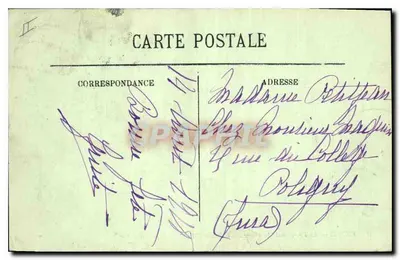 II
CARTE POSTALE
CORRESPONDANCE
ADRESSE
14
Bonne fête
Madame Petitjean
Chez Monsieur
rue du Collège
Poligny
(Jura)